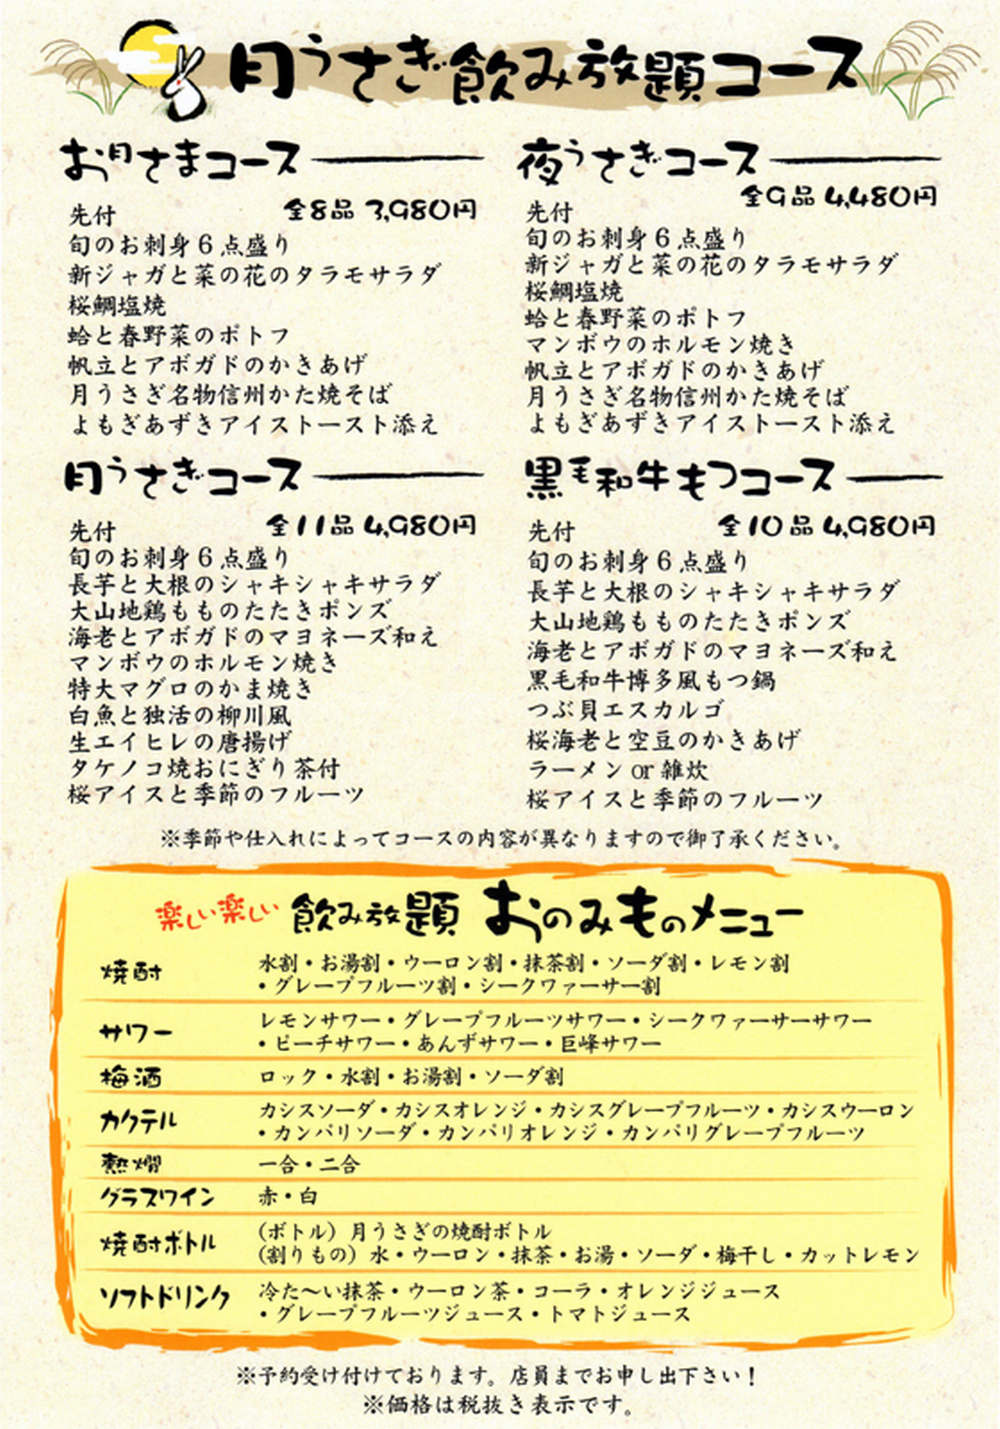 月うさぎ飲み放題コース
お月さまコース
全8品 3,980円
先付
旬のお刺身6点盛り
新ジャガと菜の花のタラモサラダ
桜鯛塩焼
蛤と春野菜のポトフ
帆立とアボガドのかきあげ
月うさぎ名物信州かた焼そば
よもぎあずきアイストースト添え
夜うさぎコース
全9品 4,480円
先付
旬のお刺身6点盛り
新ジャガと菜の花のタラモサラダ
桜鯛塩焼
蛤と春野菜のポトフ
マンボウのホルモン焼き
帆立とアボガドのかきあげ
月うさぎ名物信州かた焼そば
よもぎあずきアイストースト添え
月うさぎコース
全11品 4,980円
先付
旬のお刺身6点盛り
長芋と大根のシャキシャキサラダ
大山地鶏もものたたきポンズ
海老とアボガドのマヨネーズ和え
マンボウのホルモン焼き
特大マグロのかま焼き
白魚と独活の柳川風
生エイヒレの唐揚げ
タケノコ焼おにぎり茶付
桜アイスと季節のフルーツ
黒毛和牛もつコース
全10品 4,980円
先付
旬のお刺身6点盛り
長芋と大根のシャキシャキサラダ
大山地鶏もものたたきポンズ
海老とアボガドのマヨネーズ和え
黒毛和牛博多風もつ鍋
つぶ貝エスカルゴ
桜海老と空豆のかきあげ
ラーメンor雑炊
桜アイスと季節のフルーツ
※季節や仕入れによってコースの内容が異なりますので御了承ください。
楽しい楽しい 飲み放題 おのみものメニュー
焼酎 水割・お湯割・ウーロン割・抹茶割・ソーダ割・レモン割
・グレープフルーツ割・シークワァーサー割
サワー レモンサワー・グレープフルーツサワー・シークワァーサーサワー
・ピーチサワー・あんずサワー・巨峰サワー
梅酒 ロック・水割・お湯割・ソーダ割
カクテル カシスソーダ・カシスオレンジ・カシスグレープフルーツ・カシスウーロン
・カンパリソーダ・カンパリオレンジ・カンパリグレープフルーツ
熱燗 一合・二合
グラスワイン 赤・白
焼酎ボトル (ボトル) 月うさぎの焼酎ボトル
(割りもの) 水・ウーロン・抹茶・お湯・ソーダ・梅干し・カットレモン
ソフトドリンク 冷た〜い抹茶・ウーロン茶・コーラ・オレンジジュース
・グレープフルーツジュース・トマトジュース
※予約受け付けております。店員までお申し出下さい！
※価格は税抜き表示です。